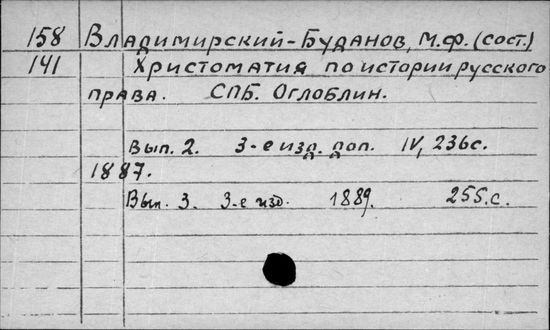 158 Владимирский-Буданов, М.Ф. (сост.)
141 Христоматия по истории русского
права. СПБ. Оглоблин.
Вып. 2. 3-е изд. доп. IV, 236с.
1887.
Вып. 3. 3-е изд. 1889. 255.с.